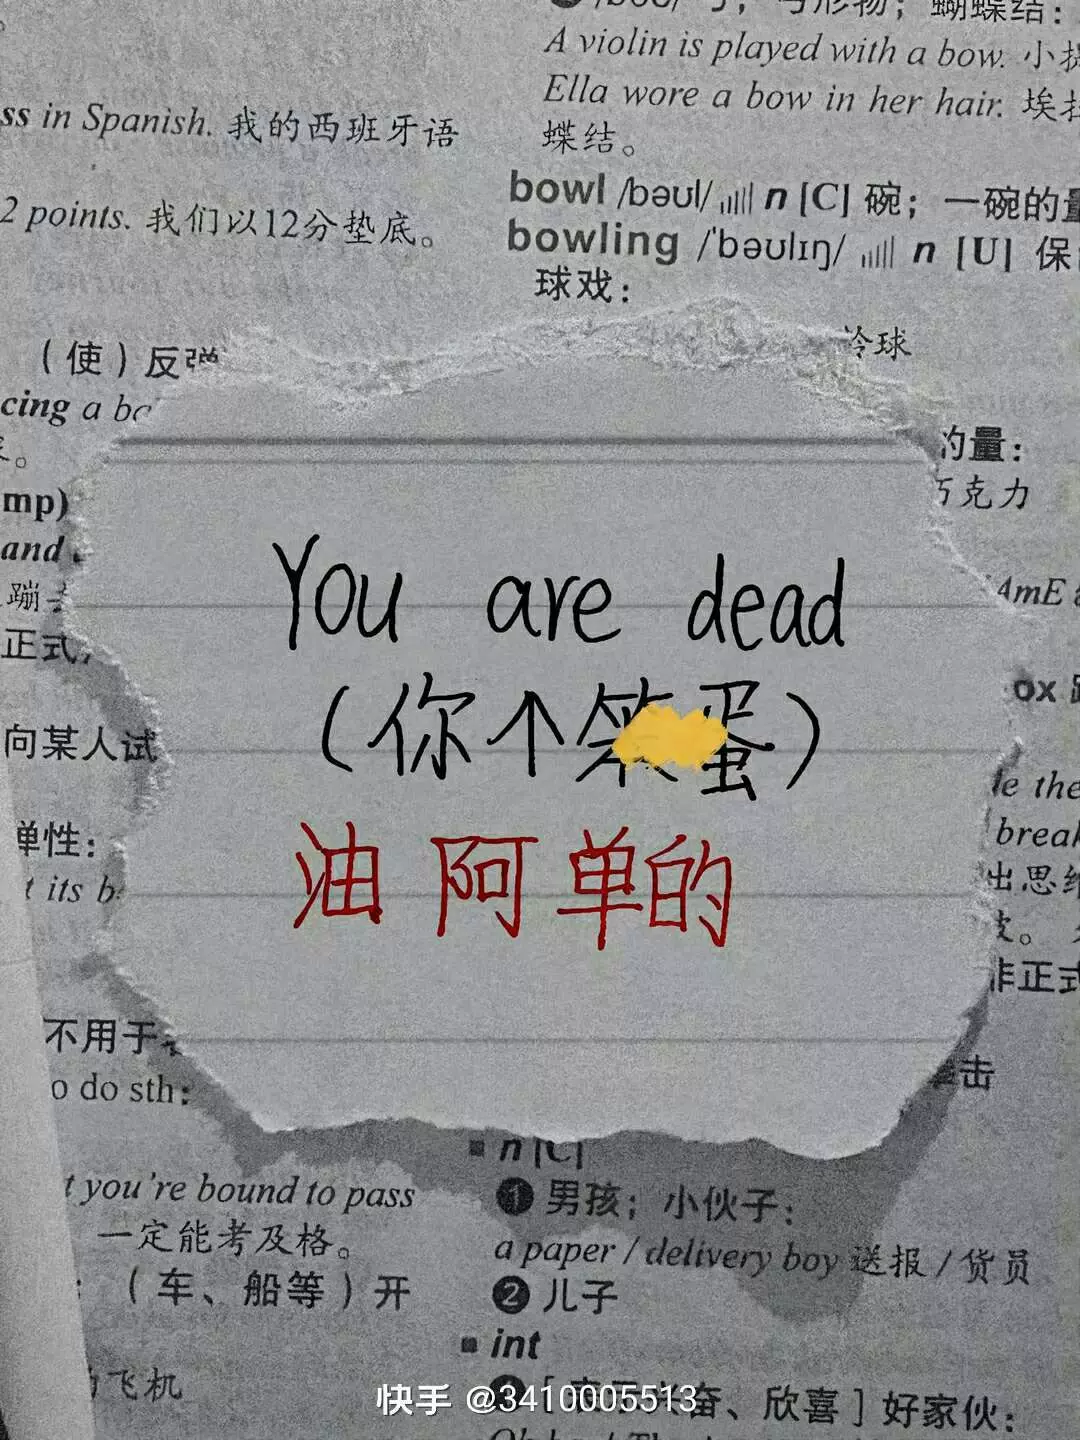 弓；弓形物；蝴蝶结：
A violin is played with a bow. 小提
Ella wore a bow in her hair. 埃拉
蝶结。
ss in Spanish. 我的西班牙语
bowl /bəʊl/ n [C] 碗；一碗的量
2 points. 我们以12分垫底。
bowling /ˈbəʊlɪŋ/ n [U] 保
球戏：
（使）反弹
龄球
cing a
的量：
巧克力
mp)
and
蹦
AmE
正式
You are dead
（你个笨蛋）
油 阿 单的
ox
向某人试
le the
弹性：
break
t its b
出思维
非正式
不用于
o do sth:
击
n [C]
t you're bound to pass
❶ 男孩；小伙子：
一定能考及格。
a paper / delivery boy 送报 / 货员
（车、船等）开
❷ 儿子
int
飞机
[表示兴奋、欣喜] 好家伙：
快手 @3410005513